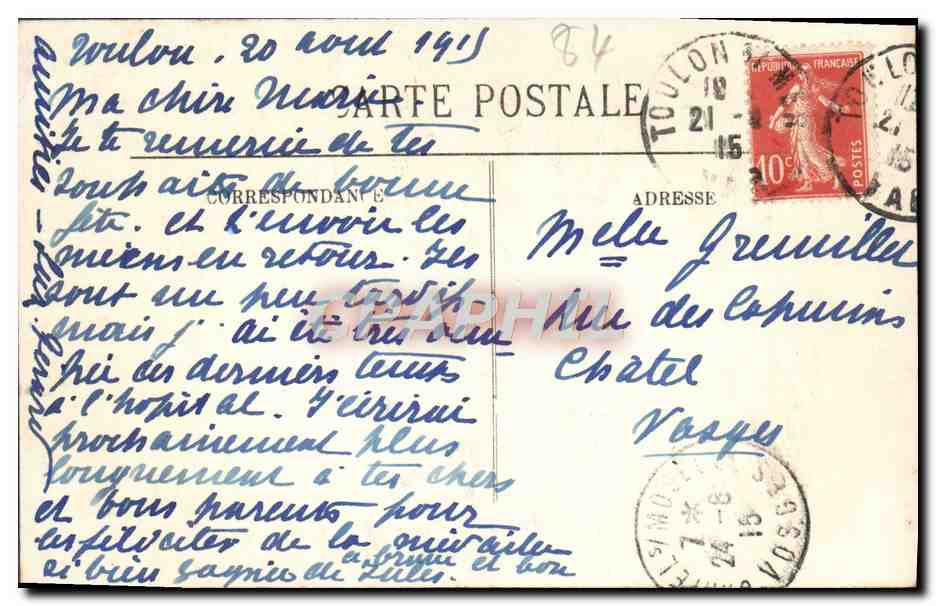 Toulon, 20 aout 1915
84
Ma chère Marie
CARTE POSTALE
Je te remercie de tes
souhaits de bonne
CORRESPONDANCE
fête. et t'envoie les
miens en retour. Ils
sont un peu tardifs
mais j'ai été très occu
pée ces derniers temps
à l'hopital. J'écrirai
prochainement plus
longuement à tes chers
et bons parents pour
les féliciter de la médaille
si bien gagnée de Jules.
à brune et bon
amitiés
TOULON
10
21 -8
15
REPUBLIQUE FRANÇAISE
10c
POSTES
TOULON
21
15
VAR
ADRESSE
Melle Gremillet
Rue des Capucins
Châtel
Vosges
CHATEL S/ MOSELLE
7 * 
24 -8
15
VOSGES
CPAPHIL